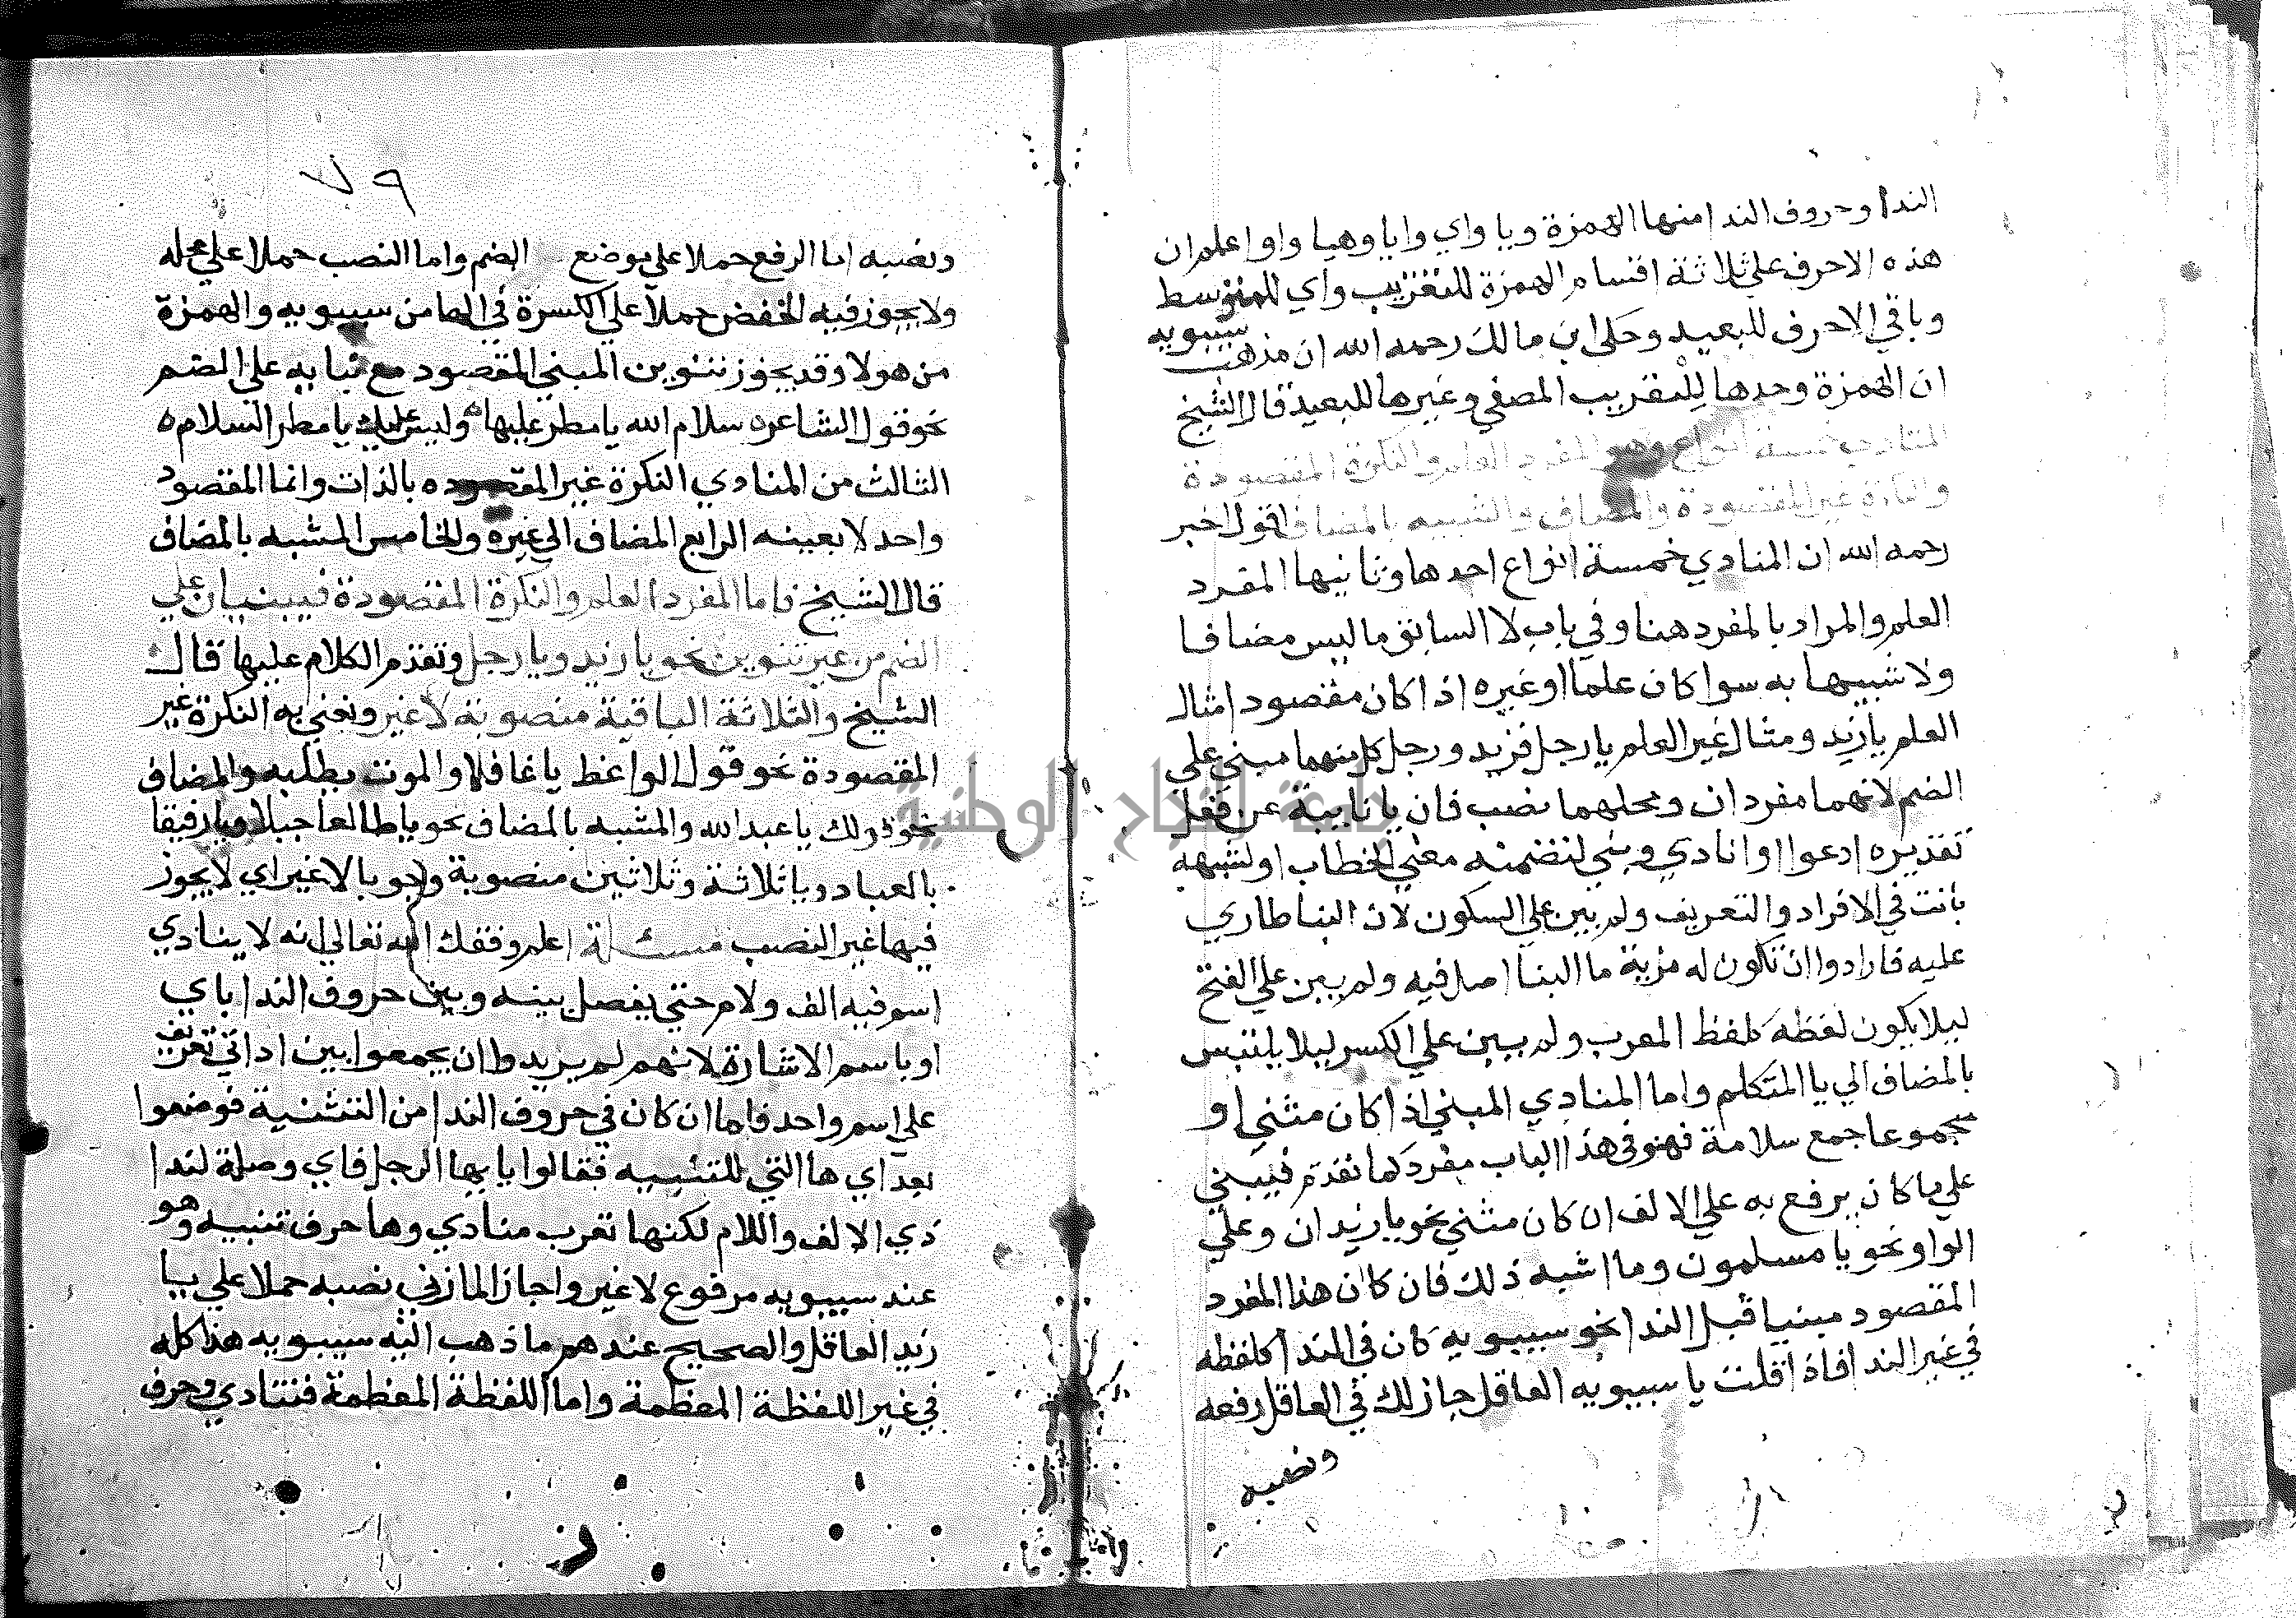 الندا وحروف الندا منها الهمزة ويا واي وايا وهيا ووا واعلم ان
هذه الاحرف علي ثلاثة اقسام الهمزة للتقريب واي للمتوسط
وباقي الاحرف للبعيد وحكي ابن مالك رحمه الله ان مذهب سيبويه
ان الهمزة وحدها للتقريب المصغي وغيرها للبعيد قال الشيخ
المنادي خمسة انواع وهو المفرد العلم والنكرة المقصودة
والنكرة غير المقصودة والمضاف والشبيه بالمضاف اقول اخبر
رحمه الله ان المنادي خمسة انواع احدها وثانيها المفرد
العلم والمراد بالمفرد هنا وفي باب لا السابق ما ليس مضافا
ولا شبيها به سوا كان علما او غيره اذا كان مقصود امثال
العلم يا زيد ومثال غير العلم يا رجل فزيد ورجل كل منهما مبني علي
الضم لانهما مفردان ومحلهما نصب فان يا نايبة عن فعل
تقديره ادعوا او انادي وبني لتضمنه معني الخطاب او لشبهه
بانت في الافراد والتعريف ولم يبن علي السكون لان البنا طاري
عليه فارادوا ان تكون له مزية ما البنا اصل فيه ولم يبن علي الفتح
ليلا يكون لفظه كلفظ المعرب ولم يبن علي الكسر ليلا يلتبس
بالمضاف الي يا المتكلم واما المنادي المبني اذا كان مثني او
مجموعا جمع سلامة فهو في هذا الباب مفرد كما تقدم فيبني
علي ما كان يرفع به علي الالف ان كان مثني نحو يا زيدان وعلي
الواو نحو يا مسلمون وما اشبه ذلك فان كان هذا المفرد
المقصود مبنيا قبل الندا نحو سيبويه كان في الندا كلفظه
في غير الندا فاذا قلت يا سيبويه العاقل جاز لك في العاقل رفعه
ونصبه
٧٩
ونصبه اما الرفع حملا علي موضع الضم واما النصب حملا علي محله
ولا يجوز فيه الخفض حملا علي الكسرة في الها من سيبويه والهمزة
من هولا وقد يجوز تنوين المبني المقصود مع بنايه علي الضم
نحو قول الشاعره سلام الله يا مطر عليها ه وليس عليك يا مطر السلام ه
الثالث من المنادي النكرة غير المقصوده بالذات وانما المقصود
واحد لا بعينه الرابع المضاف الي غيره والخامس المشبه بالمضاف
قال الشيخ فاما المفرد العلم والنكرة المقصودة فيبنيان علي
الضم من غير تنوين نحو يا زيد ويا رجل وتقدم الكلام عليها قال
الشيخ والثلاثة الباقية منصوبة لا غير ونعني به النكرة غير
المقصودة نحو قول الواعظ يا غافلا والموت يطلبه والمضاف
نحو قولك يا عبد الله والمشبه بالمضاف نحو يا طالعا جبلا ويا رفيقا
بالعباد ويا ثلاثة وثلاثين منصوبة وجوبا لا غير اي لا يجوز
فيها غير النصب مسئلة اعلم وفقك الله تعالي انه لا ينادي
اسم فيه الف ولام حتي يفصل بينه وبين حروف الندا باي
او باسم الاشارة لانهم لم يريدوا ان يجمعوا بين اداتي تعريف
علي اسم واحد فاما ان كان في حروف الندا من التنبيه فوضعوا
بعد اي ها التي للتنبيه فقالوا يا يها الرجل فاي وصلة لندا
ذي الالف واللام لكنها تعرب منادي وها حرف تنبيه وهو
عند سيبويه مرفوع لا غير واجاز المازني نصبه حملا علي يا
زيد العاقل والصحيح عندهم ما ذهب اليه سيبويه هذا كله
في غير اللفظة المعظمة واما اللفظة المعظمة فتنادي وحرف
جامعة النجاح الوطنية